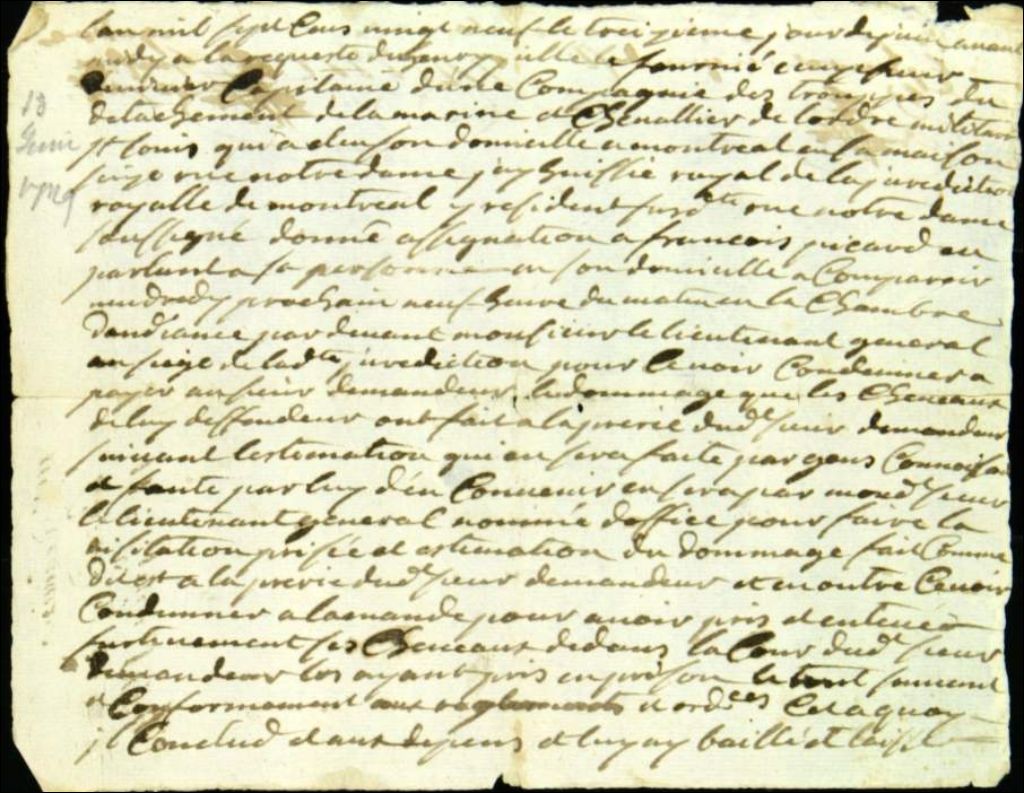 Lan mil sept Cens vingt neuf le treizieme jour de juin avant
midy a la requeste du sieur
Capitaine dune Compagnie des trouppes du
detachement de la marine et Chevallier de lordre militaire
st louis qui a elu son domicille a montreal en sa maison
size rue notre dame jay huissie royal de la jurediction
royalle de montreal y resident susdte rue notre dame
soussigné donné assignation a francois picard en
parlant a sa personne en son domicille a Comparoir
vendredy prochain neuf heure du matin en la Chambre
daudiance pardevant monsieur le lieutenant general
au siege de ladte juredictiou pour ce voir Condemner a
payer au sieur demandeur le dommage que les Chevaux
de luy deffendeur ont fait a la prerie dudt sieur demandeur
suivant lestimation qui en sera faite par gens Connoissa
et faute par luy den Convenir en sera par mondt sieur
le lieutenant general nommé doffice pour faire la
visitation prisée et estimation du dommage fait Comme
dit est a la prerie dudt sieur demandeur et en outre ce voir
Condemner a lamande pour avoir pris et enlevé
furtivement ses Chevaux dedans la Cour dudt sieur
demandeur les ayant pris en prison le tout suivant
et Conformement aux reglements et ordces Cest a quoy
jl Conclud et aux depens et luy ay baillé et laissé
13
Juin
1729